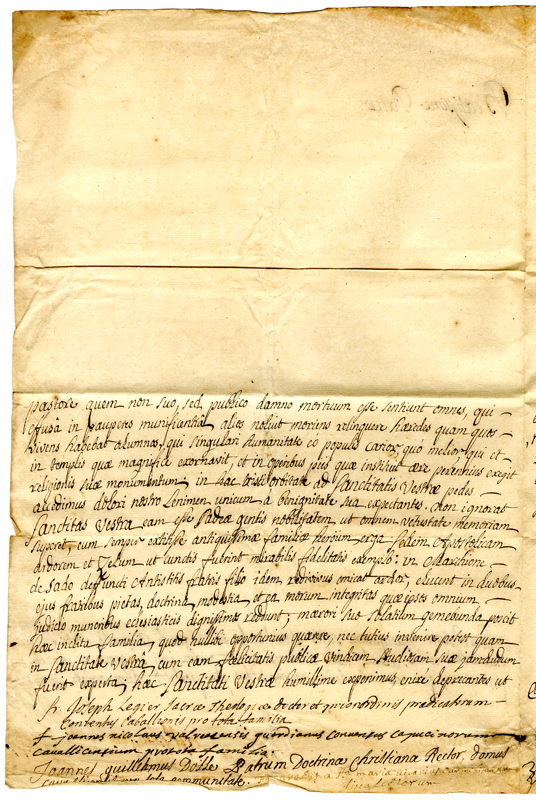 Beatissime Pater
pastore quem non suo, sed publico damno mortuum esse sentiunt omnes, qui
effusâ in pauperes munificentiâ alios noluit moriens relinquere hæredes quam quos
vivens habebat alumnos, qui singulari humanitate eò populis carior quò melior, qui et
in templis quæ magnificè exornavit, et in operibus piis quæ instituit ære perennius exegit
religionis suæ monumentum, in hac tristi orbitate ad Sanctitatis Vestræ pedes
accedimus dolori nostro lenimen unicum à benignitate sua expectantes. Non ignorat
Sanctitas Vestra eam esse Sadeæ gentis nobilitatem ut omnem vetustate memoriam
superet, eum semper extitisse antiquissimæ familiæ heroum erga Sedem Apostolicam
ardorem et zelum ut cunctis fuerint mirabilis fidelitatis exemplo: in
de Sado defuncti Antistitis fratris filio idem redivivus emicat ardor, elucent in duobus
ejus fratribus pietas, doctrina, modestia et ea morum integritas quæ ipsos omnium
judicio muneribus ecclesiasticis dignissimos reddunt; mœrori suo solatium gemebunda poscit
hæc inclita familia, quod nullibi opportunius quærere, nec tutius invenire potest quam
in Sanctitate Vestrâ, cum eam felicitatis publicæ vindicem studiosam suæ jamdudum
fuerit experta; hæc Sanctitati Vestræ humillimè exponimus, enixè deprecantes ut
fr. Joseph Legier Sacræ Theologiæ doctor et prior ordinis predicatorum
conventus Cavallionis pro tota familia
+ joannes nicolaus valreasensis guardianus conventus capucinorum
cavallicensium pro tota familia.
Joannes guillelmus Dolle Patrum Doctrinæ Christianæ Rector domus
pro tota communitate.
maria